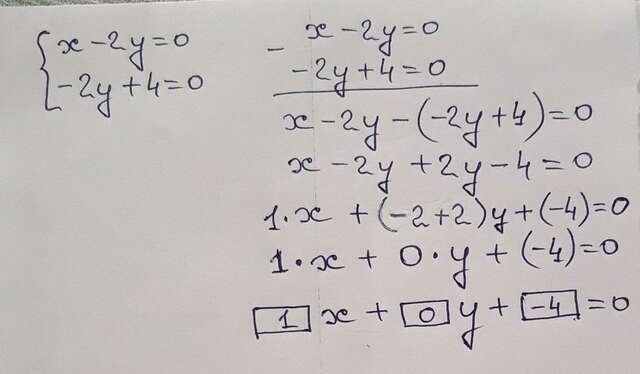 x - 2y = 0
-2y + 4 = 0
- x - 2y = 0
-2y + 4 = 0
x - 2y - (-2y + 4) = 0
x - 2y + 2y - 4 = 0
1·x + (-2+2)y + (-4) = 0
1·x + 0·y + (-4) = 0
1 x + 0 y + -4 = 0